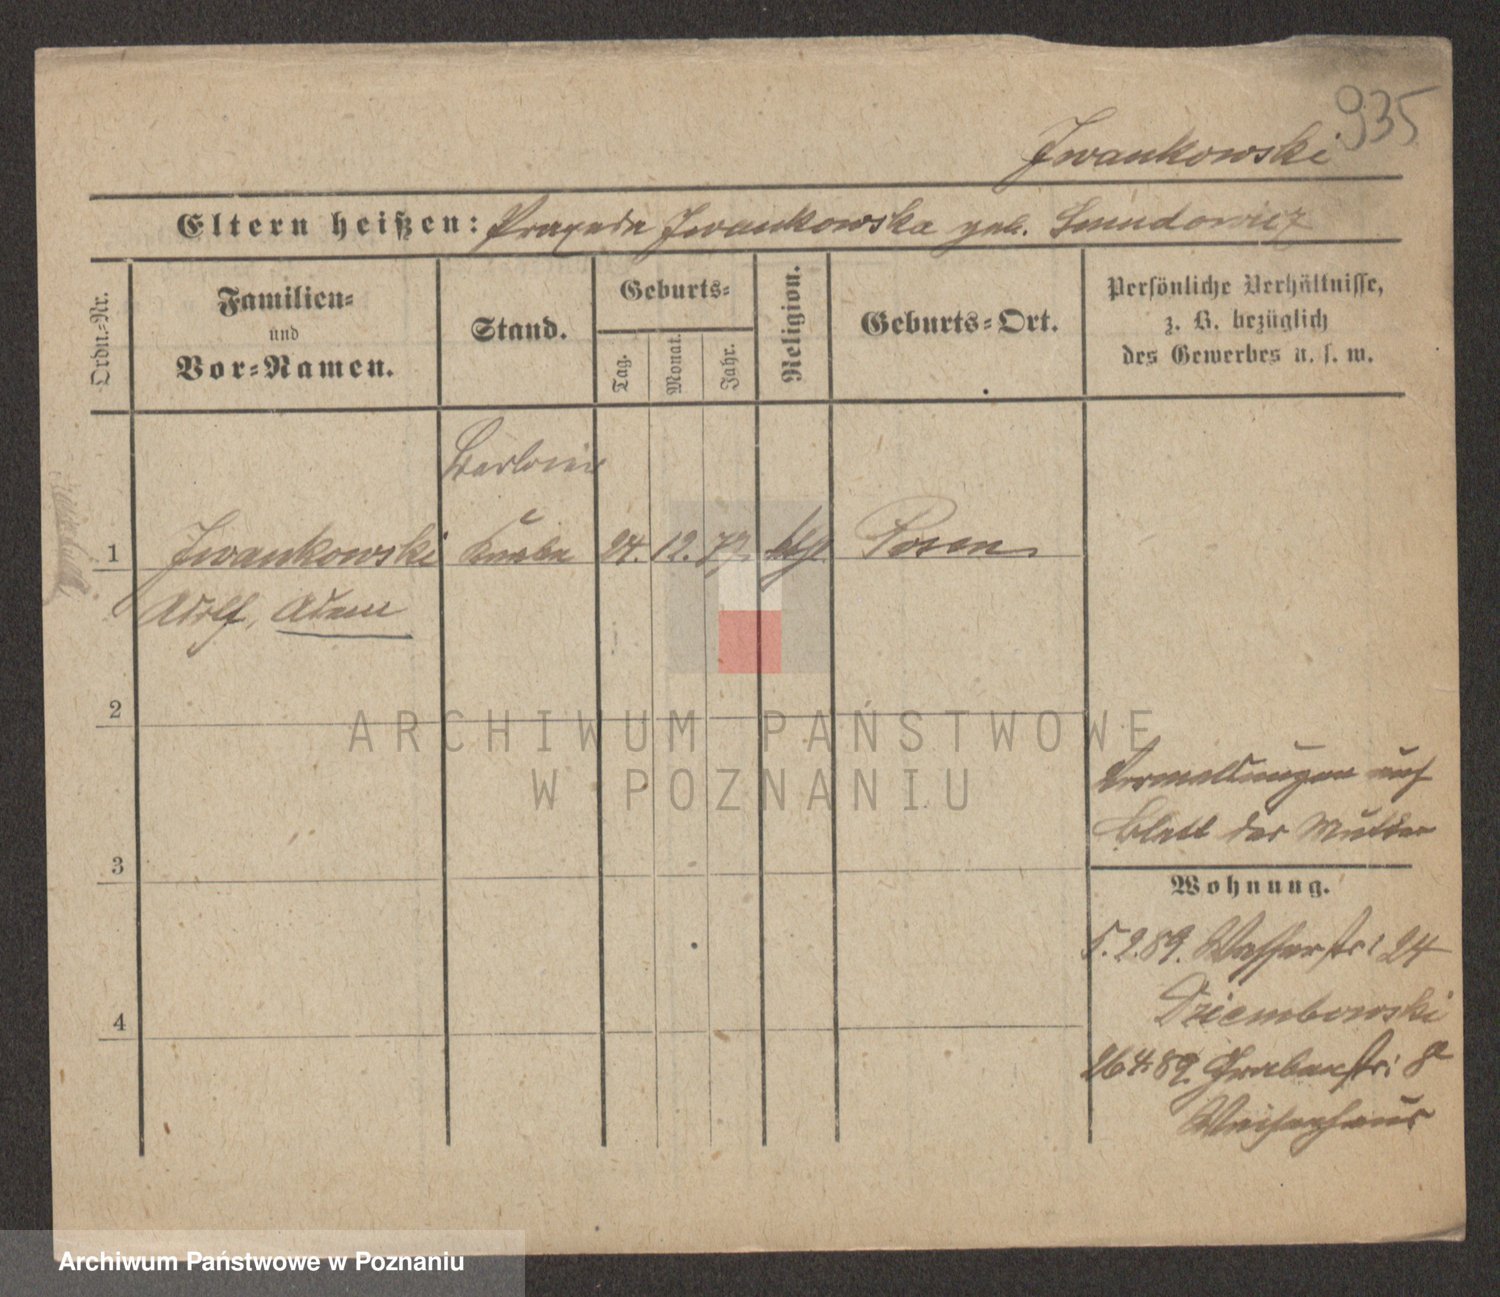 935
Iwankowski
Eltern heißen: Praxeda Iwankowska geb.
Ordn.-Nr.
Familien-
und
Vor-Namen.
Stand.
Geburts-
Tag.
Monat.
Jahr.
Religion.
Geburts-Ort.
Persönliche Verhältnisse,
z. B. bezüglich
des Gewerbes u. s. w.
1 Iwankowski Knabe 24. 12. 79. ktl. Posen
Adolf, Adam
2
3
4
Vermeldungen auf
Blatt der Mutter
Wohnung.
5.2.89. Wasserstr: 24
Dziembowski
26 4. 89. Grabenstr:
Waisenhaus
ARCHIWUM PAŃSTWOWE
W POZNANIU
Archiwum Państwowe w Poznaniu